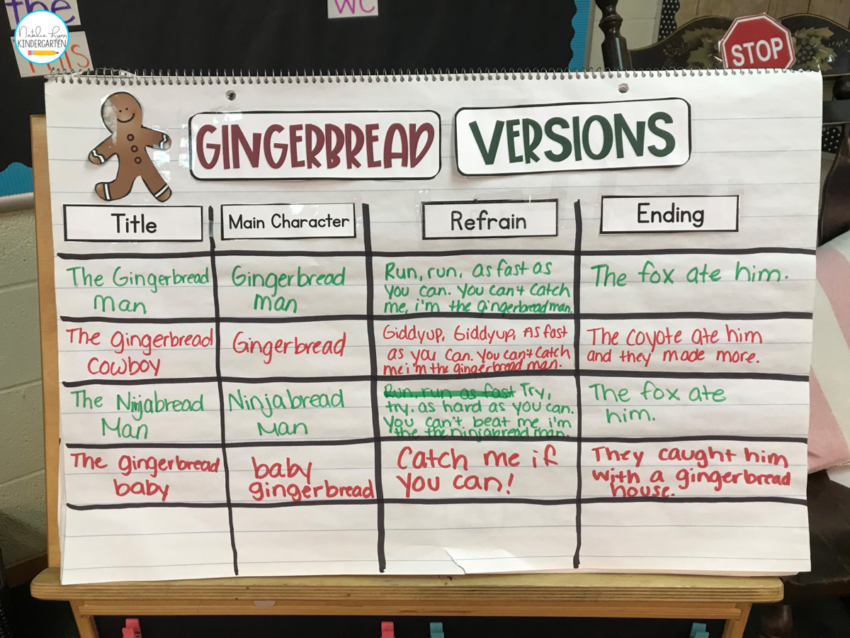 the
Natalie Lynn
KINDERGARTEN
WC
STOP
GINGERBREAD VERSIONS
Title
Main Character
Refrain
Ending
The Gingerbread
Man
Gingerbread
Man
Run, run, as fast as
you can. You can't catch
me, i'm the gingerbread man.
The fox ate him.
The gingerbread
COWBOY
Gingerbread
Giddyup, Giddyup, As fast
as you can. You can't catch
me i'm the gingerbread man.
The coyote ate him
and they made more.
The Ninjabread
Man
Ninjabread
Man
Run, run as fast Try,
try, as hard as you can.
You can't beat me i'm
the the Ninjabread man.
The fox ate
him.
The gingerbread
baby
baby
gingerbread
Catch me if
you can!
They caught him
with a gingerbread
house.